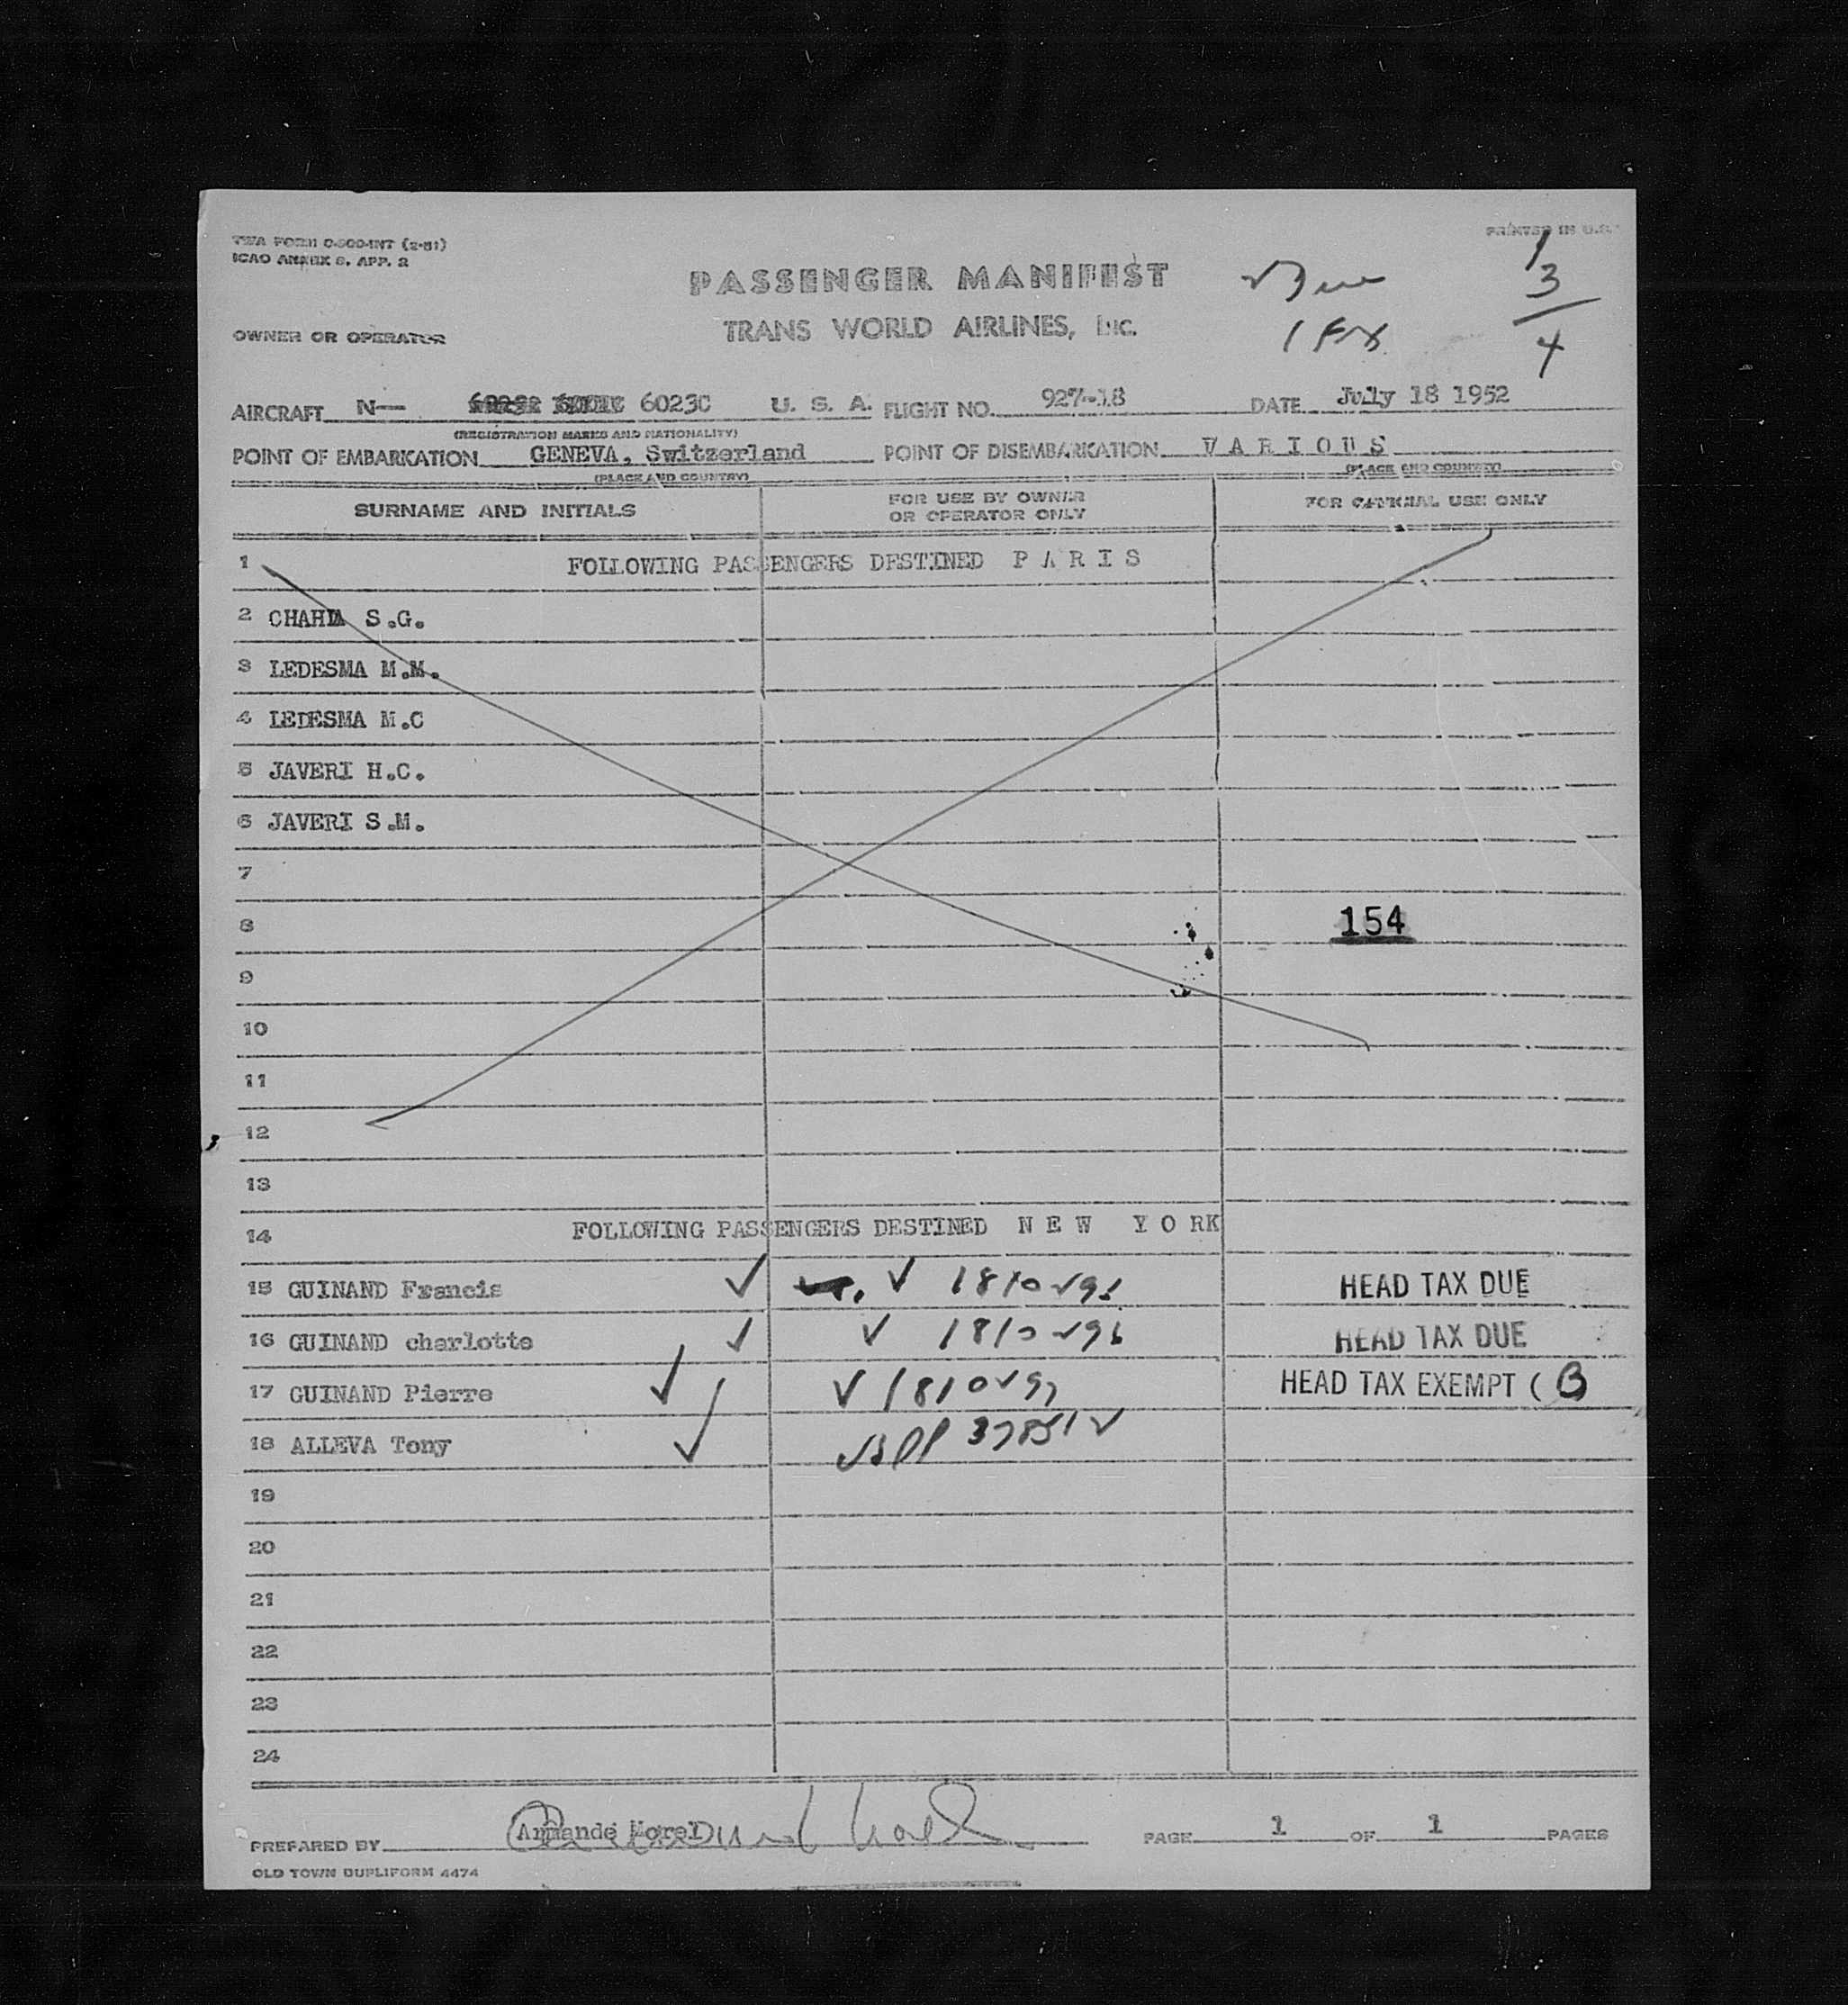 TWA FORM 0-500-INT (2-51)
ICAO ANNEX 9, APP. 2
PRINTED IN U.S.
PASSENGER MANIFEST
TRANS WORLD AIRLINES, INC.
1
3
4
OWNER OR OPERATOR
AIRCRAFT N— 6023C U. S. A. FLIGHT NO. 927-18 DATE July 18 1952
(REGISTRATION MARKS AND NATIONALITY)
POINT OF EMBARKATION GENEVA, Switzerland POINT OF DISEMBARKATION V A R I O U S
(PLACE AND COUNTRY) (PLACE AND COUNTRY)
SURNAME AND INITIALS FOR USE BY OWNER OR OPERATOR ONLY FOR OFFICIAL USE ONLY
1 FOLLOWING PASSENGERS DESTINED P A R I S
2 S.G.
3 LEDESMA M.M.
4 LEDESMA M.C
5 JAVERI H.C.
6 JAVERI S.M.
7
8 154
9
10
11
12
13
14 FOLLOWING PASSENGERS DESTINED N E W Y O R K
15 GUINAND Francis ✓ ✓ HEAD TAX DUE
16 GUINAND charlotte ✓ ✓ HEAD TAX DUE
17 GUINAND Pierre ✓ ✓ HEAD TAX EXEMPT ( B
18 ALLEVA Tony ✓
19
20
21
22
23
24
PREPARED BY Armande Morel PAGE 1 OF 1 PAGES
OLD TOWN DUPLIFORM 4474